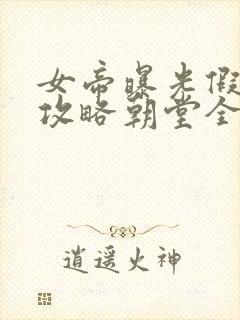 女帝曝光假
攻略朝堂全
逍遥火神